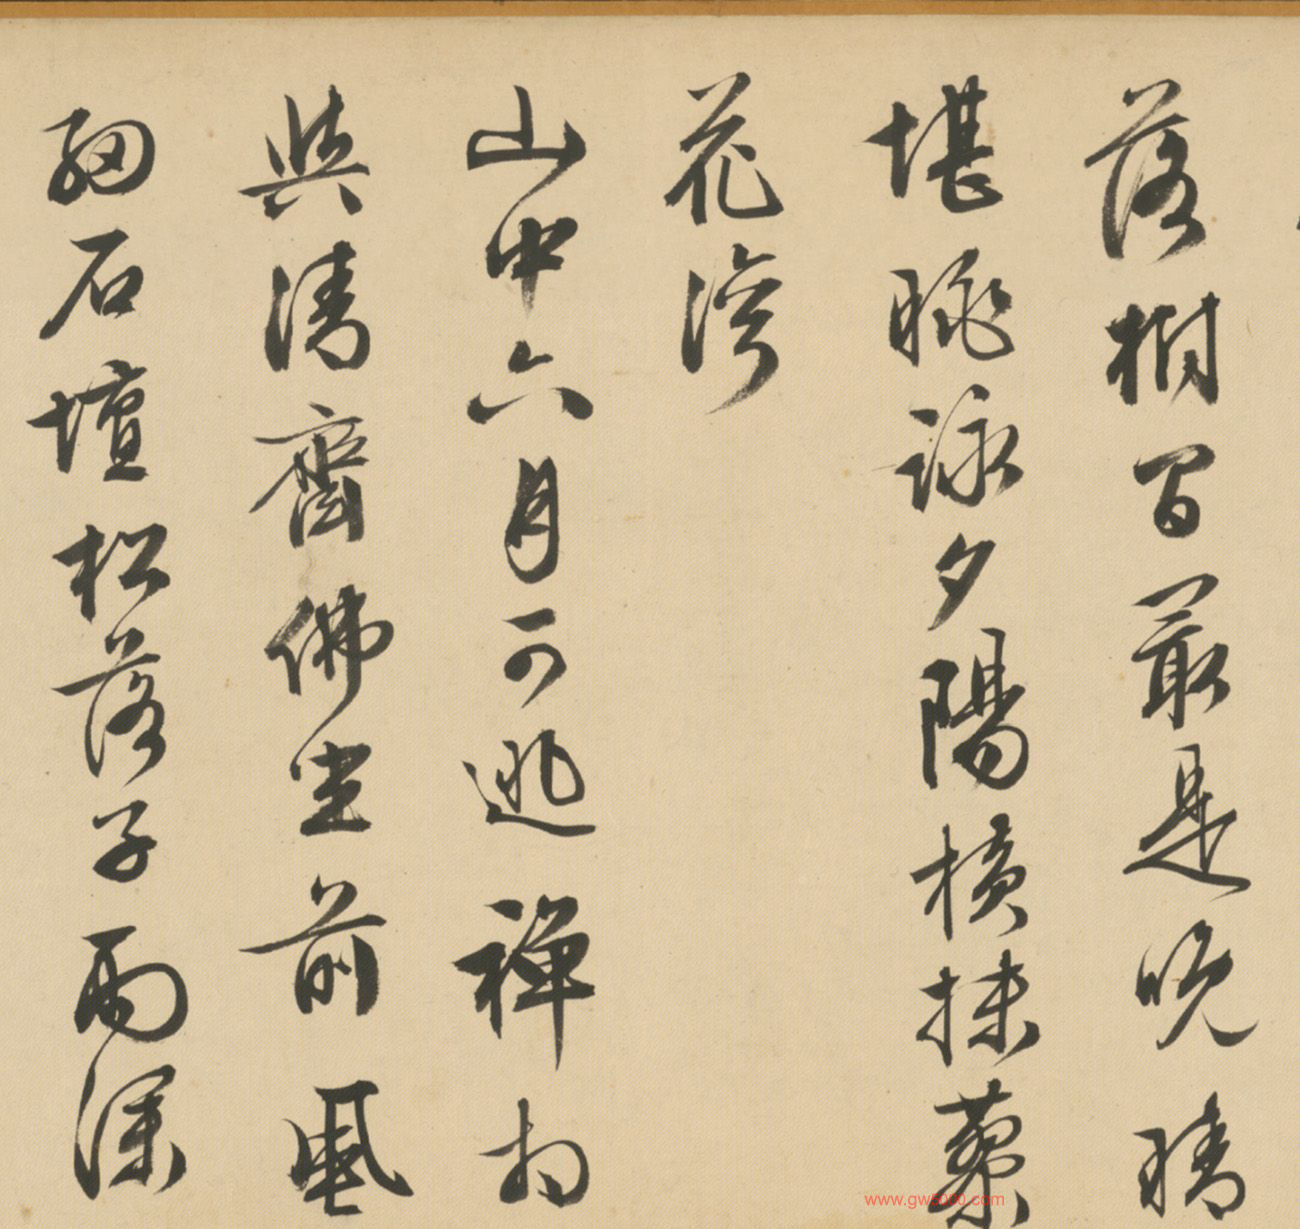 落樹間最是晚晴
堪眺詠夕陽橫抹蓼
花灣
山中六月可逃禪相
與清齋佛坐前風
細石壇松落子雨深
www.gw5000.com